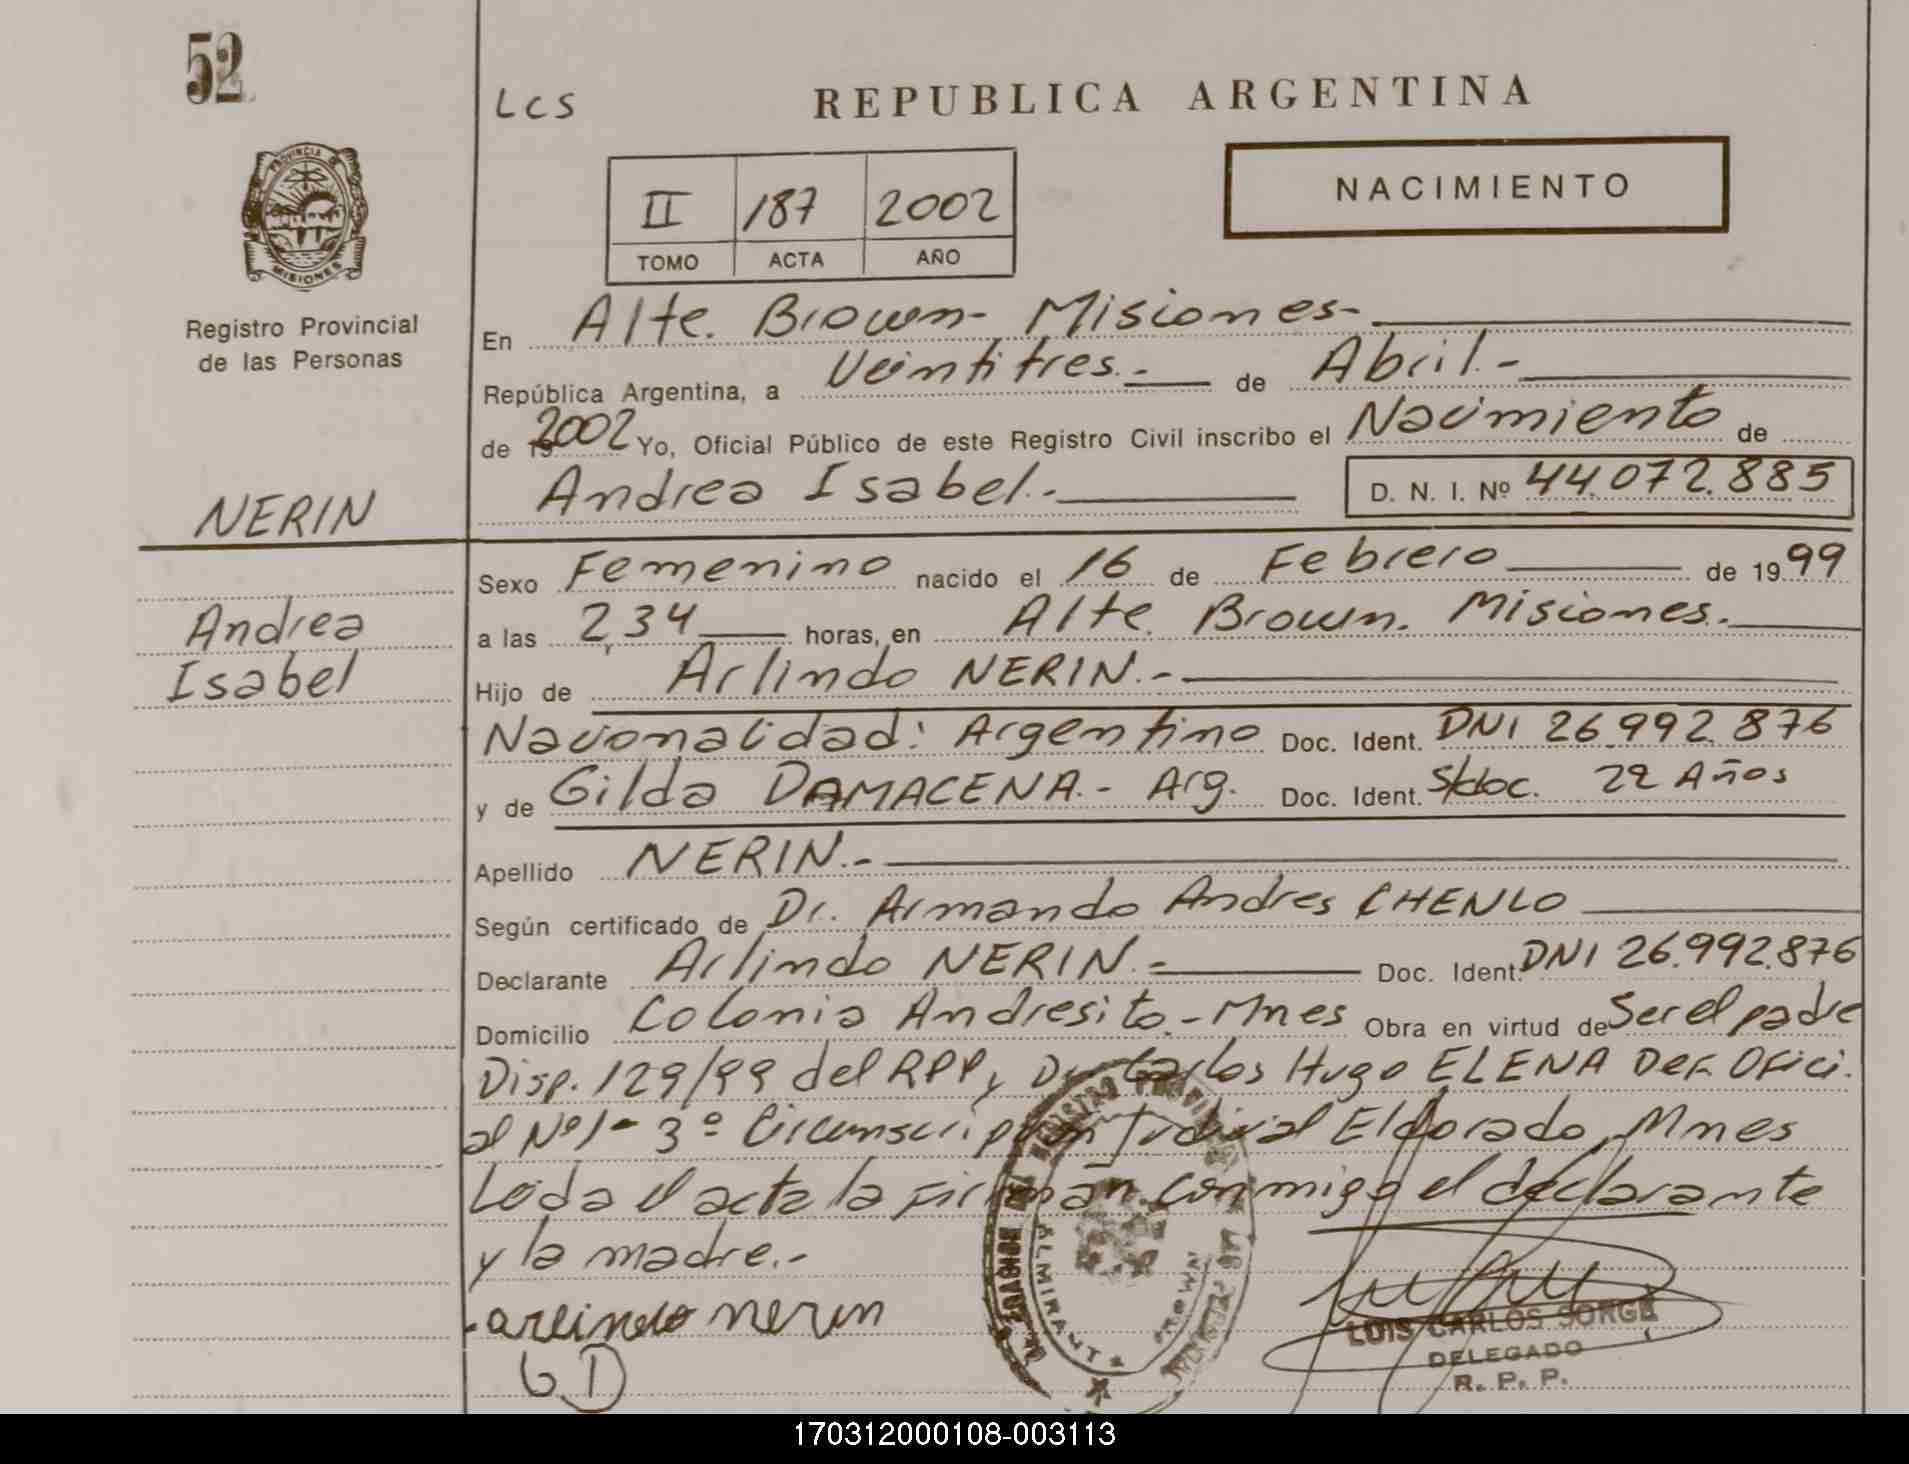 52
LCS
REPUBLICA ARGENTINA
PROVINCIA DE
MISIONES
II 187 2002
TOMO ACTA AÑO
NACIMIENTO
Registro Provincial
de las Personas
En Alte. Brown - Misiones -
República Argentina, a Veintitres.- de Abril.-
de 19 2002 Yo, Oficial Público de este Registro Civil inscribo el Nacimiento de
Andrea Isabel.- D. N. I. Nº 44.072.885
NERIN
Sexo Femenino nacido el 16 de Febrero de 1999
Andrea
a las 2,34 horas, en Alte. Brown. Misiones.-
Isabel
Hijo de Arlindo NERIN.-
Nacionalidad: Argentino Doc. Ident. DNI 26.992.876
y de Gilda DAMACENA.- Arg. Doc. Ident. S/doc. 22 Años
Apellido NERIN.-
Según certificado de Dr. Armando Andres CHENLO
Declarante Arlindo NERIN.- Doc. Ident. DNI 26.992.876
Domicilio Colonia Andresito - Mnes Obra en virtud de Ser el padre
Disp. 129/99 del RPP, Dr. Carlos Hugo ELENA Def. Ofici.
al Nº1 - 3º Circunscripción Judicial Eldorado, Mnes
Leida el acta la firman conmigo el declarante
y la madre.-
arlindo nerin
G D
ALMIRANTE BROWN
LUIS CARLOS SORGE
DELEGADO
R. P. P.
170312000108-003113